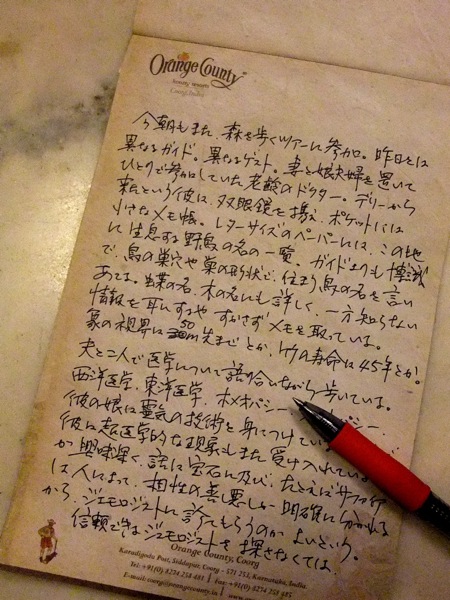 Orange County
luxury resorts
Coorg, India
今朝もまた、森を歩くツアーに参加。昨日とは
異なるガイド。異なるゲスト。妻と娘夫婦を置いて
ひとりで参加していた老齢のドクター。デリーから
来たという彼は、双眼鏡を携え、ポケットには
小さなメモ帳。レターサイズのペーパーには、この地
に生息する野鳥の名の一覧。ガイドよりも博識
で、鳥の巣穴や巣の形状で、住まう鳥の名を言い
あてる。蝶の名、木の名にも詳しく、一方知らない
情報を耳にするや、すかさずメモを取っている。
象の視界は50m先までとか、竹の寿命は45年とか。
夫と二人で医学について語り合いながら歩いている。
西洋医学、東洋医学、ホメオパシー
彼の娘は霊気の技術を身につけている
彼は超医学的な現象もまた受け入れている
が興味深く、話は宝石に及び、たとえばサファイヤ
は人によって、相性の善悪が明確に分かれる
から、ジェモロジストに診てもらうのがよいという。
信頼できるジェモロジストを探さなくては。
Orange County, Coorg
Karadigodu Post, Siddapur, Coorg - 571 253, Karnataka, India
Tel: +91(0) 8274 258 481 | Fax: +91(0) 8274 258 485
E-mail: coorg@orangecounty.in |